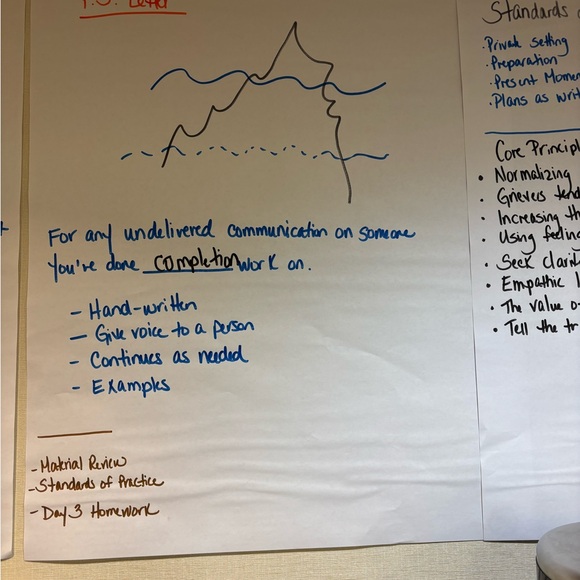 P.S. Letter
For any undelivered communication on someone
You've done completion work on.
- Hand-written
- Give voice to a person
- Continues as needed
- Examples
- Material Review
- Standards of Practice
- Day 3 Homework
Standards
· Private Setting
· Preparation
· Present
· Plans as
Core
• Normalizing
• Grievers
• Increasing
• Using
• Seek
• Empathic
• The value
• Tell the